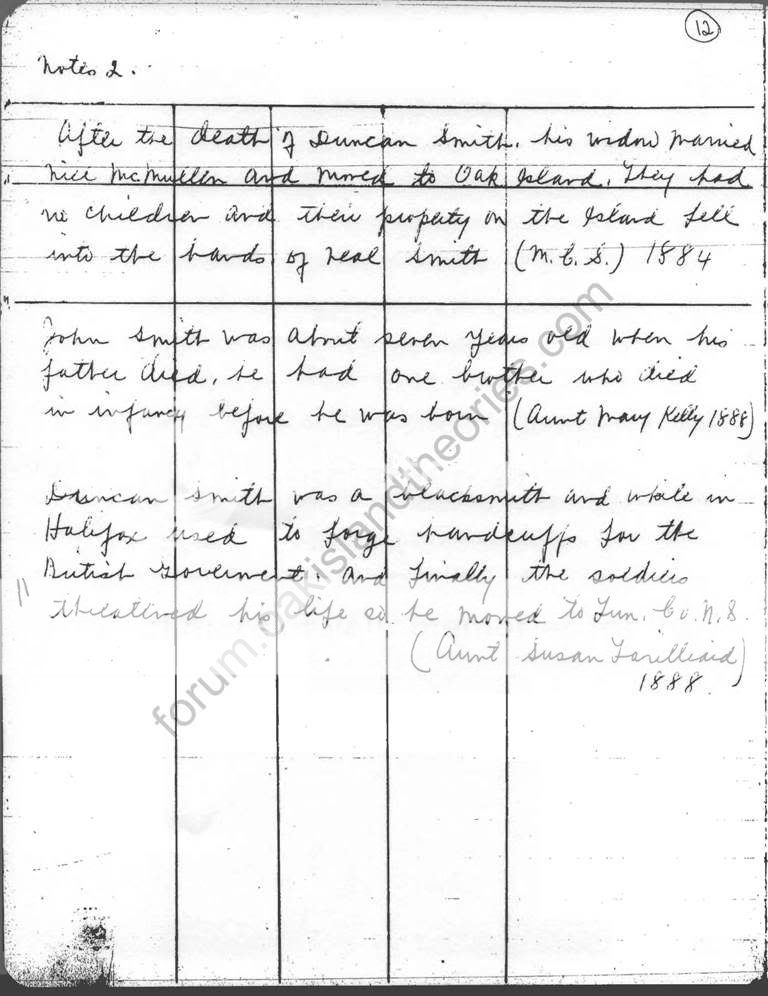 12
Notes 2.
After the death of Duncan Smith, his widow married
Neil McMullen and moved to Oak Island. They had
no children and their property on the Island fell
into the hands of Neal Smith (M.C.S.) 1884
John Smith was about seven years old when his
father died, he had one brother who died
in infancy before he was born (Aunt Mary Kelly 1888)
Duncan Smith was a blacksmith and while in
Halifax used to forge handcuffs for the
British Government. And finally the soldiers
threatened his life so he moved to Lun. Co. N.S.
(Aunt Susan
1888.
forum.oakislandtheories.com